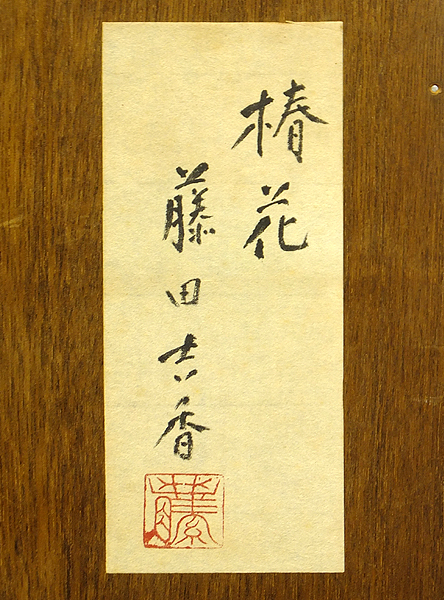 椿花
藤田吉香
藤